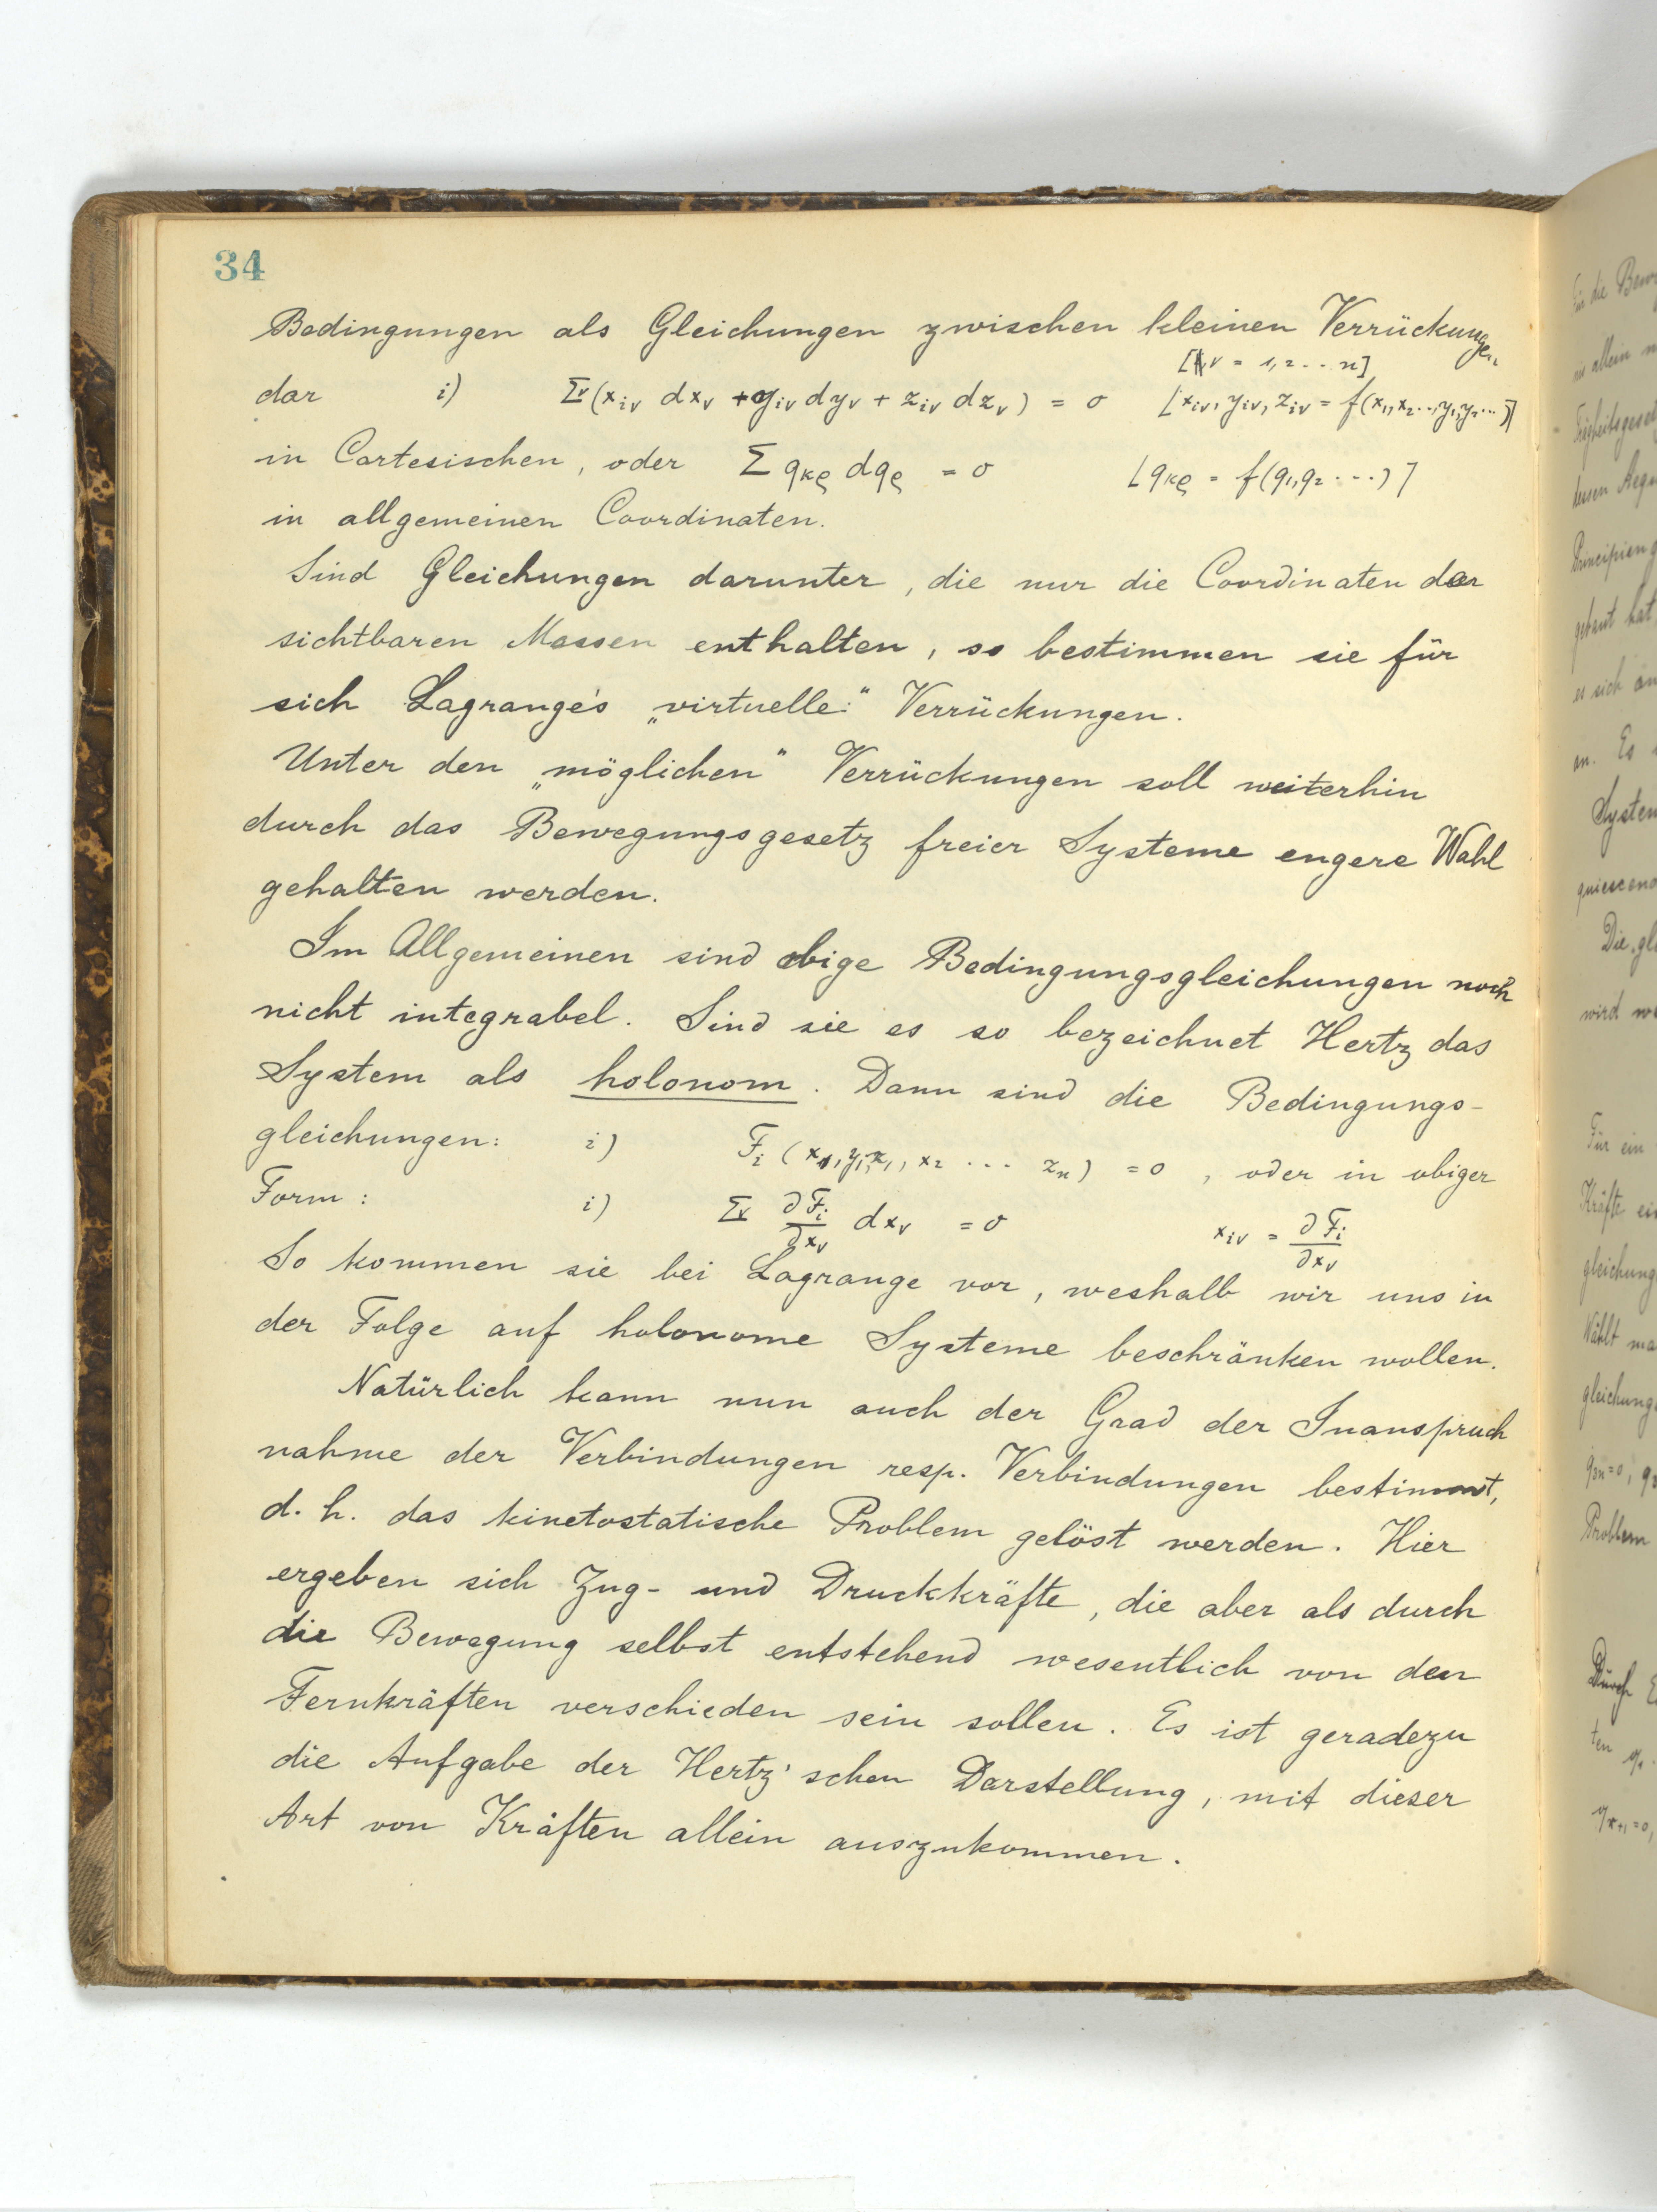 34
Bedingungen als Gleichungen zwischen kleinen Verrückungen
[ν = 1,2 ... n]
dar i) Σν (x_iν dx_ν + y_iν dy_ν + z_iν dz_ν) = 0 [x_iν, y_iν, z_iν = f(x₁,x₂..,y₁,y₂...)]
in Cartesischen, oder Σ q_κρ dq_ρ = 0 [q_κρ = f(q₁,q₂ ...)]
in allgemeinen Coordinaten.
Sind Gleichungen darunter, die nur die Coordinaten der
sichtbaren Massen enthalten, so bestimmen sie für
sich Lagrange's „virtuelle" Verrückungen.
Unter den „möglichen" Verrückungen soll weiterhin
durch das Bewegungsgesetz freier Systeme engere Wahl
gehalten werden.
Im Allgemeinen sind obige Bedingungsgleichungen noch
nicht integrabel. Sind sie es so bezeichnet Hertz das
System als holonom. Dann sind die Bedingungs-
gleichungen: i) F_i (x₁,y₁,z₁,x₂ ... z_n) = 0, oder in obiger
Form: i) Σν ∂F_i/∂x_ν dx_ν = 0 x_iν = ∂F_i/∂x_ν
So kommen sie bei Lagrange vor, weshalb wir uns in
der Folge auf holonome Systeme beschränken wollen.
Natürlich kann nun auch der Grad der Inanspruch
nahme der Verbindungen resp. Verbindungen bestimmt,
d. h. das kinetostatische Problem gelöst werden. Hier
ergeben sich Zug- und Druckkräfte, die aber als durch
die Bewegung selbst entstehend wesentlich von den
Fernkräften verschieden sein sollen. Es ist geradezu
die Aufgabe der Hertz'schen Darstellung, mit dieser
Art von Kräften allein auszukommen.